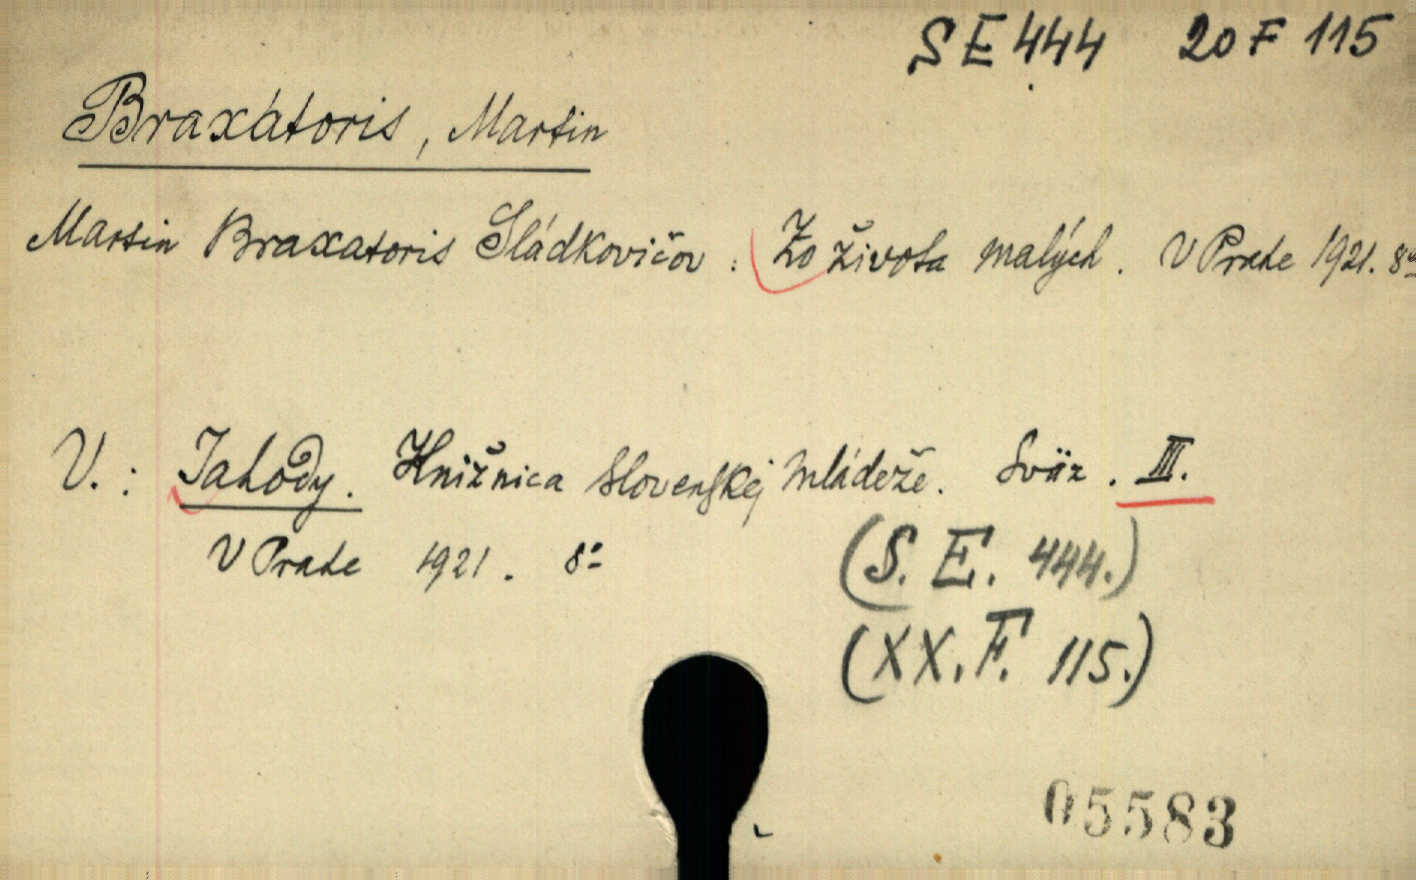 SE 444 20 F 115
Braxátoris, Martin
Martin Braxatoris Sládkovičov : Zo života malých. V Prahe 1921. 8º
V.: Jahody. Knižnica slovenskej mládeže. Sväz. III.
V Prahe 1921. 8º
(S. E. 444.)
(XX. F. 115.)
05583